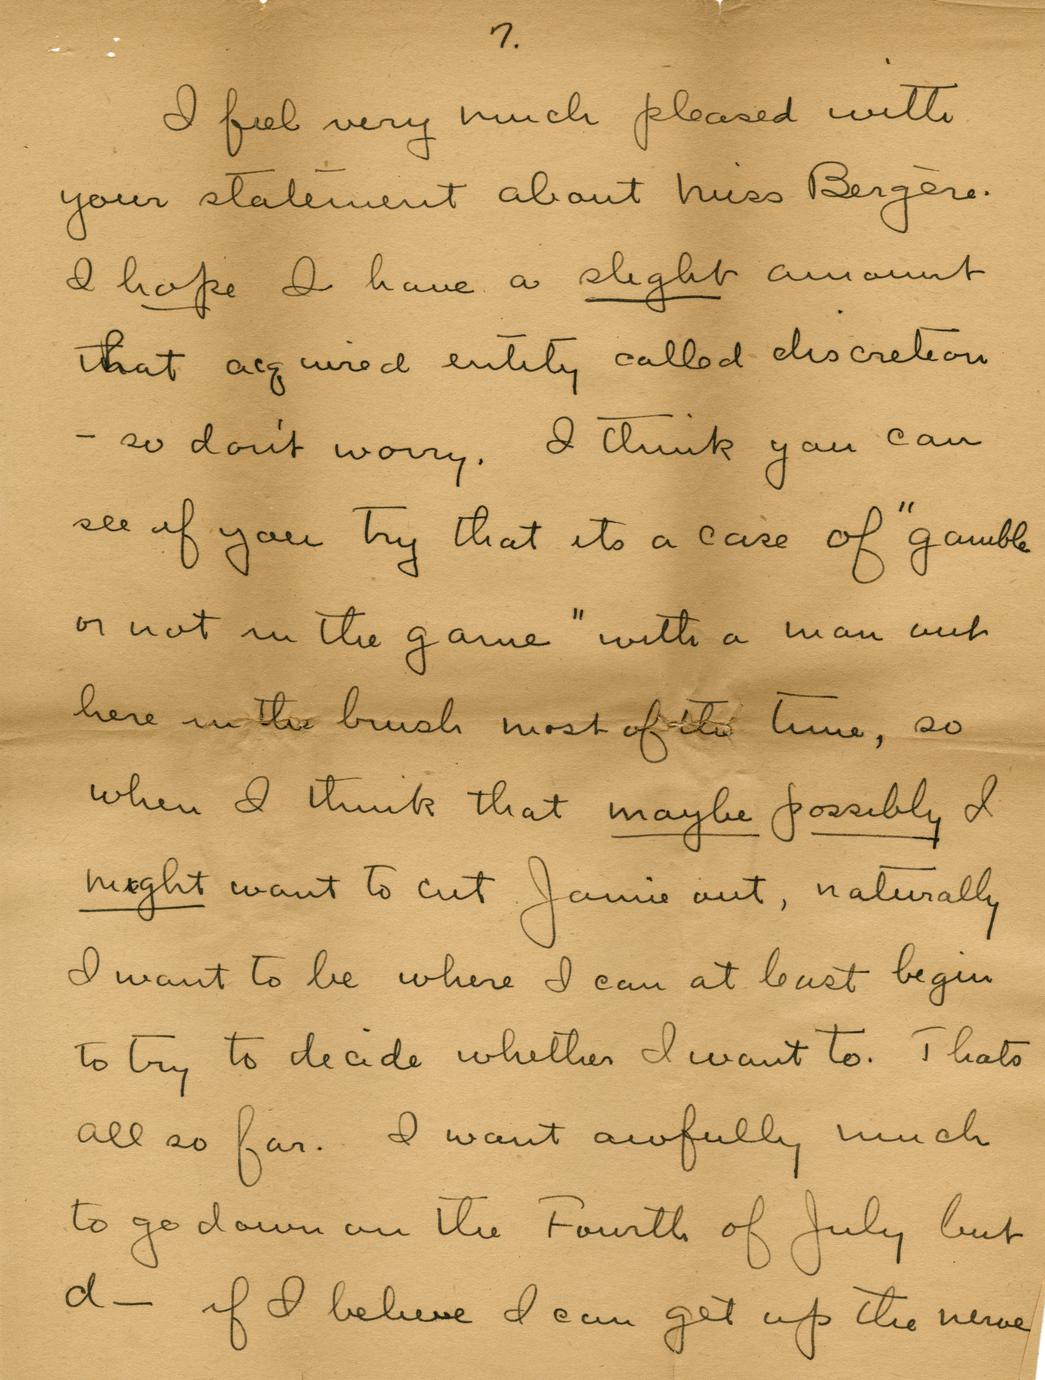 7.
I feel very much pleased with
your statement about Miss Bergère.
I hope I have a slight amount
that acquired entity called discretion
- so don't worry. I think you can
see if you try that its a case of "gamble
or not in the game" with a man out
here in the brush most of the time, so
when I think that maybe possibly I
might want to cut Jamie out, naturally
I want to be where I can at least begin
to try to decide whether I want to. Thats
all so far. I want awfully much
to go down on the Fourth of July but
d— if I believe I can get up the nerve